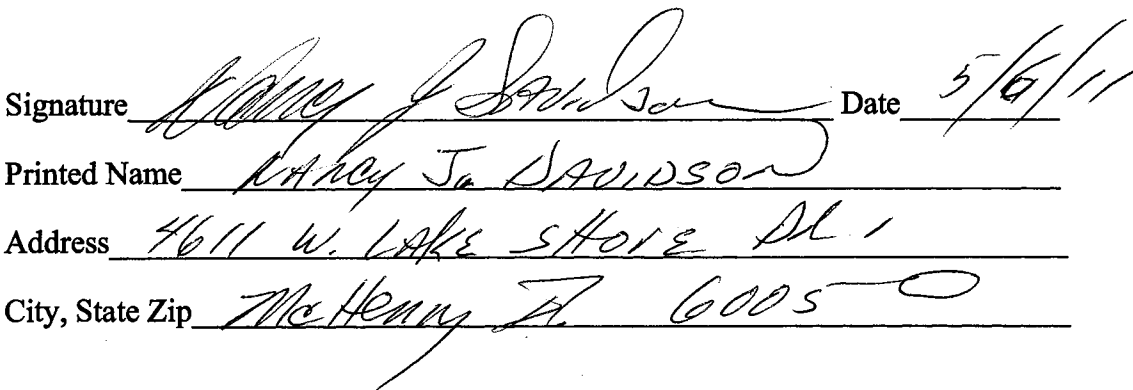 Signature Nancy J Davidson Date 5/6/11
Printed Name NANCY J. DAVIDSON
Address 4611 W. LAKE SHORE DR.
City, State Zip McHenry IL 60050